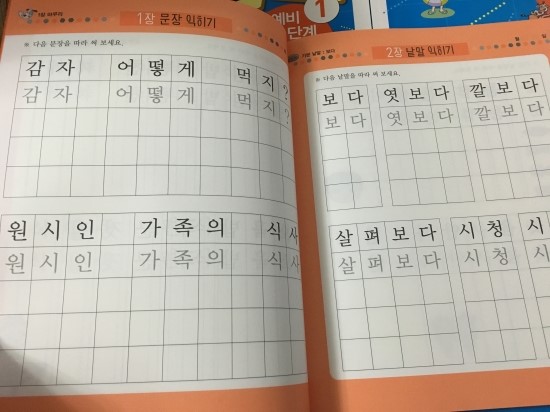 1장 문장 익히기
※ 다음 문장을 따라 써 보세요.
감자 어떻게 먹지?
감자 어떻게 먹지?
원시인 가족의 식사
원시인 가족의 식사
예비
단계
1
2장 낱말 익히기
※ 다음 낱말을 따라 써 보세요.
보다 엿보다 깔보다
보다 엿보다 깔보다
살펴보다 시청 시
살펴보다 시청 시